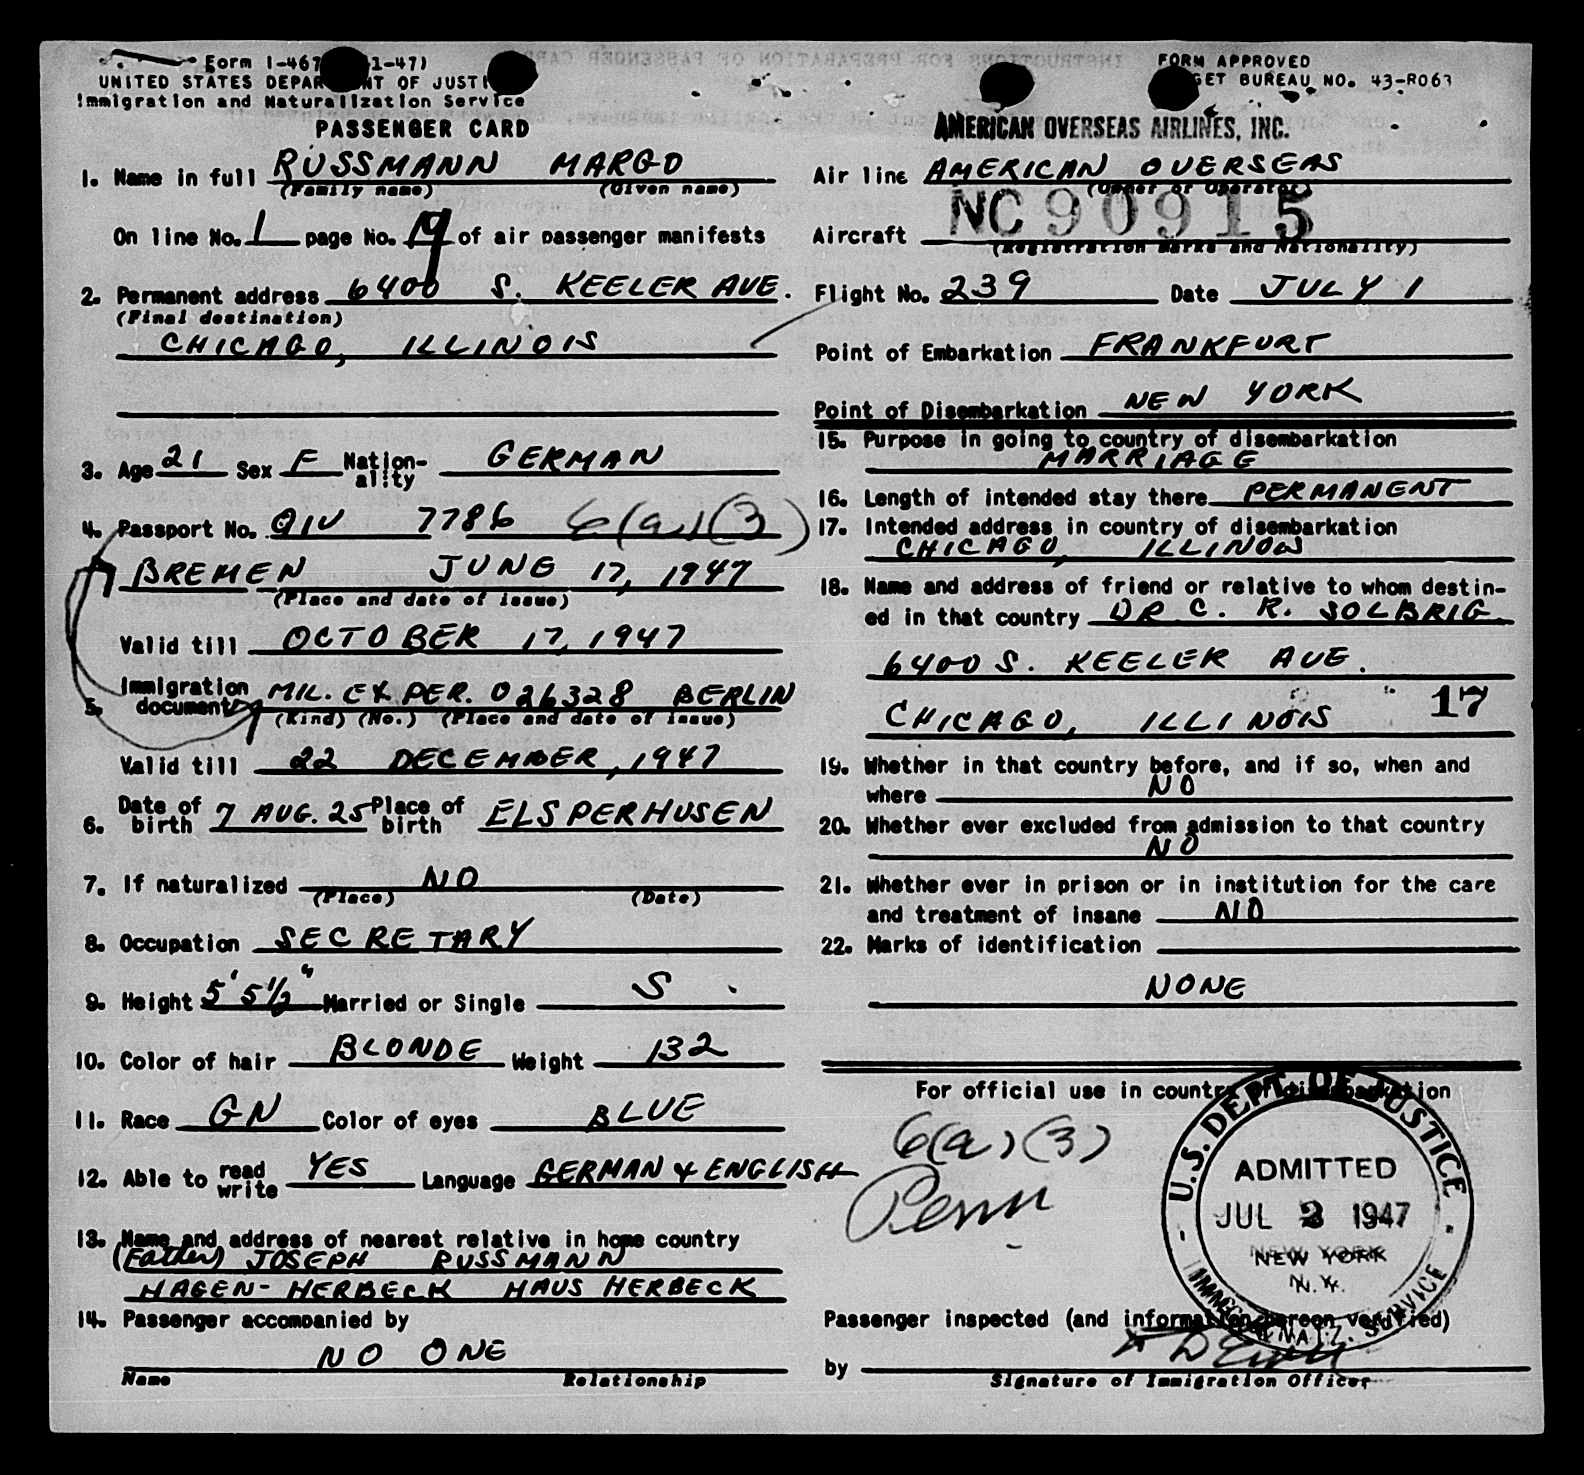 Form I-467 1-47)
UNITED STATES DEPAR NT OF JUSTI
Immigration and Naturalization Service
PASSENGER CARD
1. Name in full RUSSMANN MARGO
(Family name) (Given name)
On line No. 1 page No. 19 of air passenger manifests
2. Permanent address 6400 S. KEELER AVE.
(Final destination)
CHICAGO, ILLINOIS
3. Age 21 Sex F Nation-ality GERMAN
4. Passport No. 7786 6(a)(3)
BREMEN JUNE 17, 1947
(Place and date of issue)
Valid till OCTOBER 17, 1947
5. Immigration document MIL. EX PER. 026328 BERLIN
(Kind) (No.) (Place and date of issue)
Valid till 22 DECEMBER, 1947
6. Date of birth 7 AUG. 25 Place of birth ELSPERHUSEN
7. If naturalized NO
(Place) (Date)
8. Occupation SECRETARY
9. Height 5' 5½" Married or Single S.
10. Color of hair BLONDE Weight 132
11. Race GN Color of eyes BLUE
12. Able to read write YES Language GERMAN & ENGLISH
13. Name and address of nearest relative in home country
(Father) JOSEPH RUSSMANN
HAGEN-HERBECK HAUS HERBECK
14. Passenger accompanied by
NO ONE
Name Relationship
FORM APPROVED
GET BUREAU NO. 43-R063
AMERICAN OVERSEAS AIRLINES, INC.
Air line AMERICAN OVERSEAS
(Owner or Operator)
Aircraft NC90915
(Registration marks and Nationality)
Flight No. 239 Date JULY 1
Point of Embarkation FRANKFURT
Point of Disembarkation NEW YORK
15. Purpose in going to country of disembarkation
MARRIAGE
16. Length of intended stay there PERMANENT
17. Intended address in country of disembarkation
CHICAGO, ILLINOIS
18. Name and address of friend or relative to whom destin-
ed in that country DR. C. R. SOLBRIG
6400 S. KEELER AVE.
CHICAGO, ILLINOIS 17
19. Whether in that country before, and if so, when and
where NO
20. Whether ever excluded from admission to that country
NO
21. Whether ever in prison or in institution for the care
and treatment of insane NO
22. Marks of identification
NONE
For official use in country of disembarkation
6(a)(3)
U.S. DEPT. OF JUSTICE
ADMITTED
JUL 2 1947
NEW YORK
N.Y.
IMMIG. & NATZ. SERVICE
Passenger inspected (and information hereon verified)
by
Signature of Immigration Officer